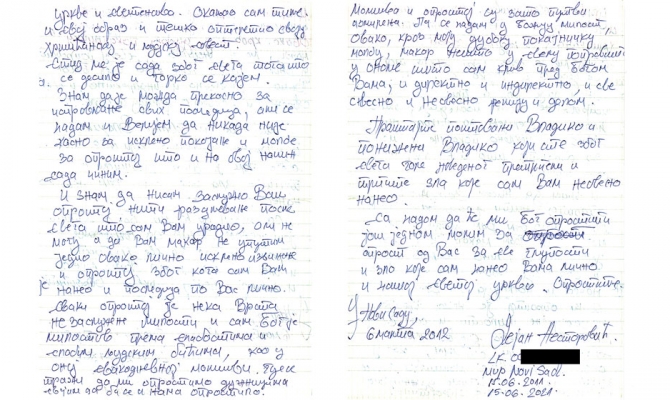 цркве и свештенство. Окаљао сам тиме
и свој образ и тешко оптеретио своју
хришћанску и људску свест.
Стид ме је сада због свега тога што
се десило и горко се кајем.
Знам да је можда прекасно за
исправљање свих последица, али се
надам и верујем да никада није
касно за искрено покајање и молбе
за опроштај што и на овај начин
сада чиним.
И знам да нисам заслужио Ваш
опроштај, нити разумевање после
свега што сам Вам урадио, али не
могу а да Вам макар не упутим
једно овако лично искрено извињење
и опроштај због кога сам Вам
нанео и последица по Вас лично.
Сваки опроштај је нека врста
незаслужене милости и сам Бог је
милостив према слабостима и
људским бићима, као у
оној свакодневној молитви. Где се
тражи да ми опростимо дужницима
својим да би се и нама опростило.
Молитва и опроштај су зато путеви
Па се надам у Божију милост.
Овако, кроз моју дубоку покајничку
молбу, макар нешто у свему поправити
у ономе што сам крив пред Богом
Вама, и директно и индиректно, и све
свесно и несвесно речију и делом.
Праштајте поштовани Владико и
понижени Владико који сте због
свега горе наведеног претрпели и
трпите зла које сам Вам несвесно
нанео.
Са надом да ће ми Бог опростити
још једном молим за
опрост од Вас за све глупости
и зло које сам нанео Вама лично
и нашој светој цркви. Опростите.
У Новом Саду,
6 марта 2012
Дејан Несторовић
LK. 00
MUP Novi Sad.
15.06.2011.
15.06.2021.